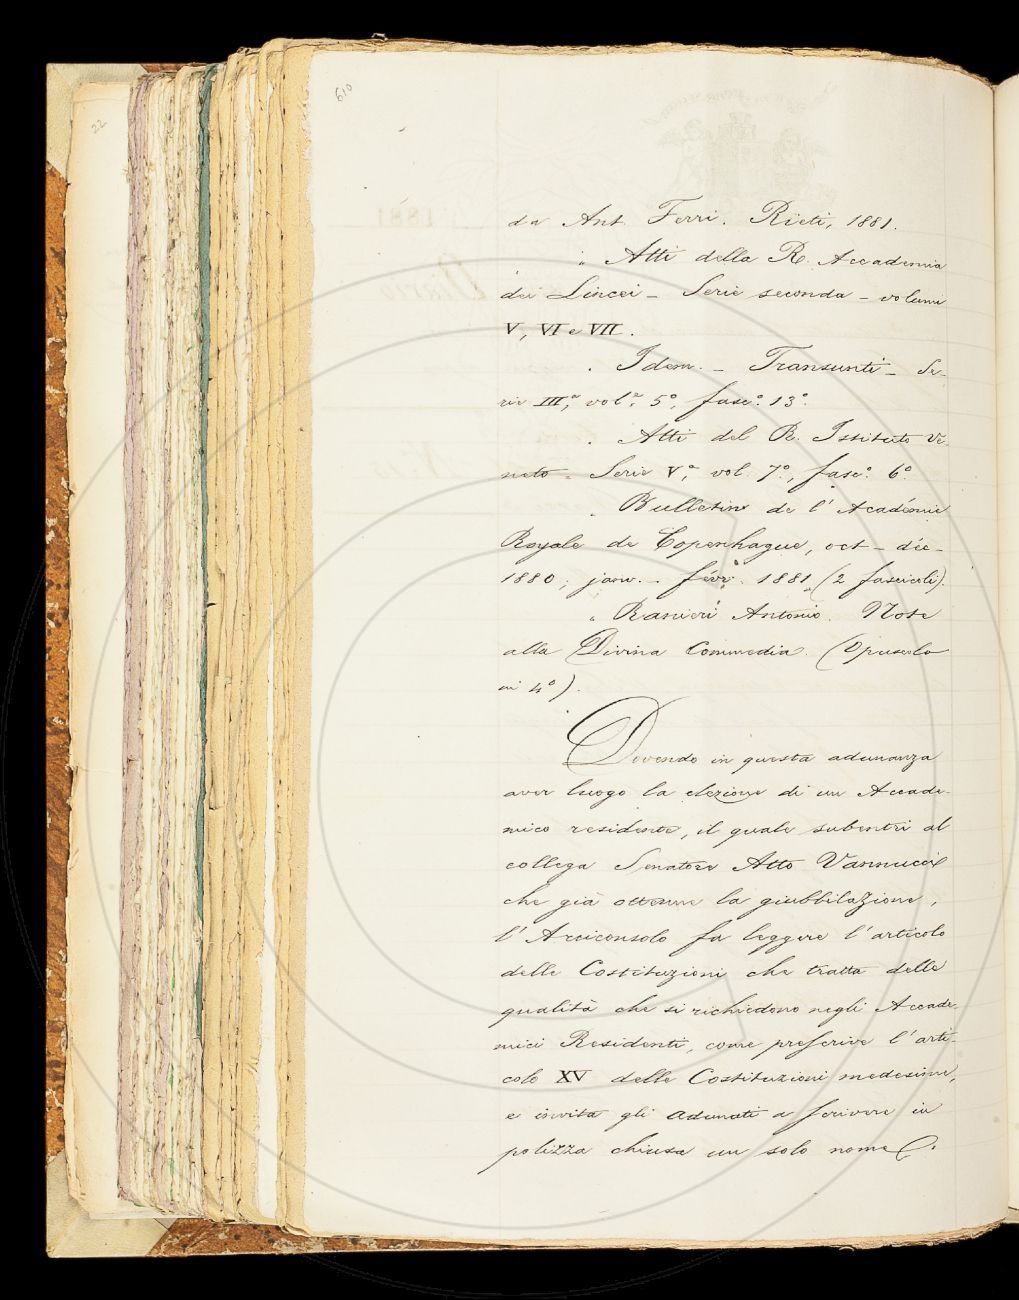 22
610
da Ant. Ferri. Rieti, 1881.
" Atti della R. Accademia
dei Lincei - Serie seconda - volumi
V, VI e VII.
" Idem. - Transunti - Se-
rie IIIª, volᵉ. 5º, fascº. 13º.
" Atti del R. Istituto Ve-
neto - Serie Vª, vol. 7º, fascº. 6º.
" Bulletin de l'Académie
Royale de Copenhague, oct - déc -
1880; janv. - févrʳ. 1881 (2 fascicoli).
" Ranieri Antonio. Note
alla Divina Commedia. (Opuscolo
in 4º).
Dovendo in questa adunanza
aver luogo la elezione di un Accade-
mico residente, il quale subentri al
collega Senatore Atto Vannucci
che già ottenne la giubbilazione,
l'Arciconsolo fa leggere l'articolo
delle Costituzioni che tratta delle
qualità che si richiedono negli Accade-
mici Residenti, come prescrive l'arti-
colo XV delle Costituzioni medesime,
e invita gli adunati a scrivere in
polizza chiusa un solo nome.